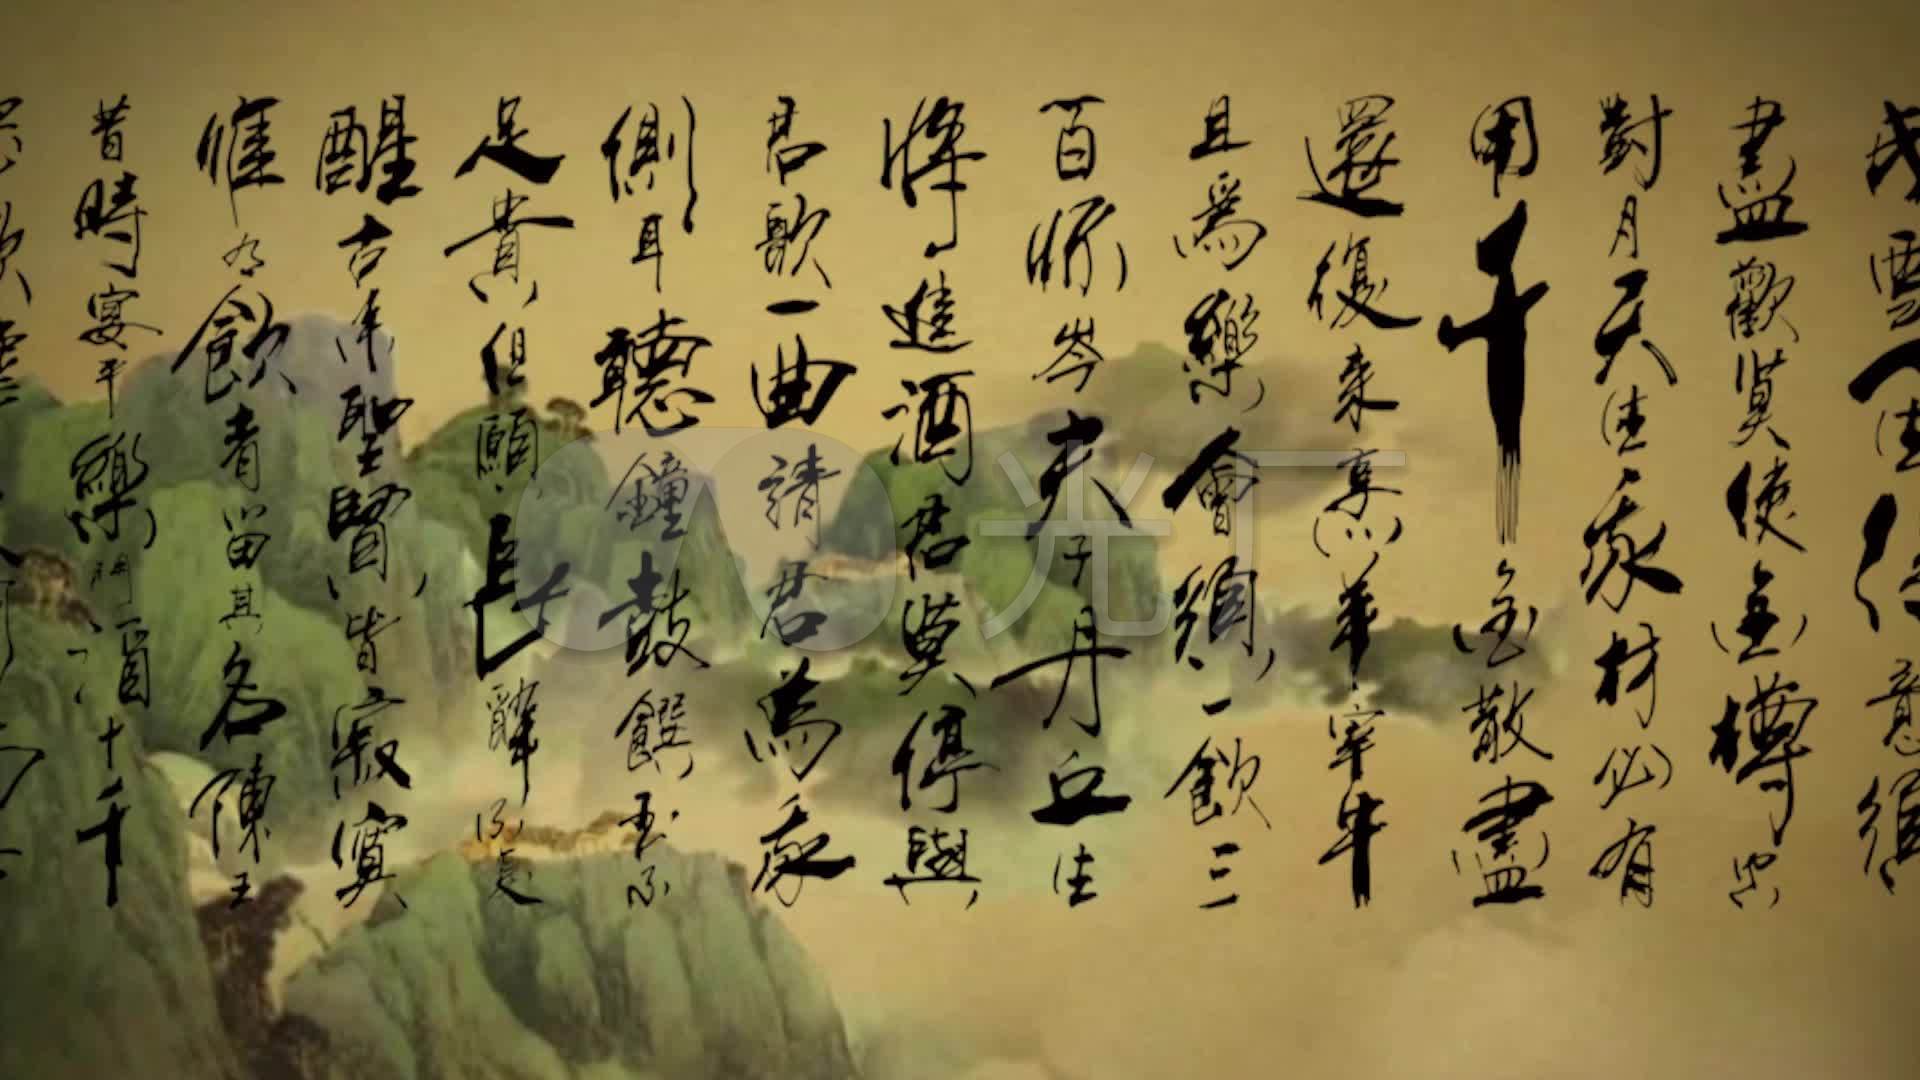 成雪人生得意須
盡歡莫使金樽空
對月天生我材必有
用千金散盡
還復來烹羊宰牛
且爲樂會須一飲三
百杯岑夫子丹丘生
將進酒君莫停與
君歌一曲請君為我
側耳聽鐘鼓饌玉不
足貴但願長醉不
醒古來聖賢皆寂寞
惟有飲者留其名陳王
昔時宴平樂鬥酒十千
光厂